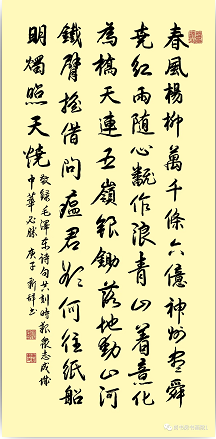 春風楊柳萬千條六億神州盡舜
堯紅雨随心翻作浪青山着意化
為橋天連五嶺銀鋤落地動山河
鐵臂摇借問瘟君欲何往紙船
明燭照天燒
毛澤东诗句共刻時艱衆志成城
中華必勝 庚子新 书